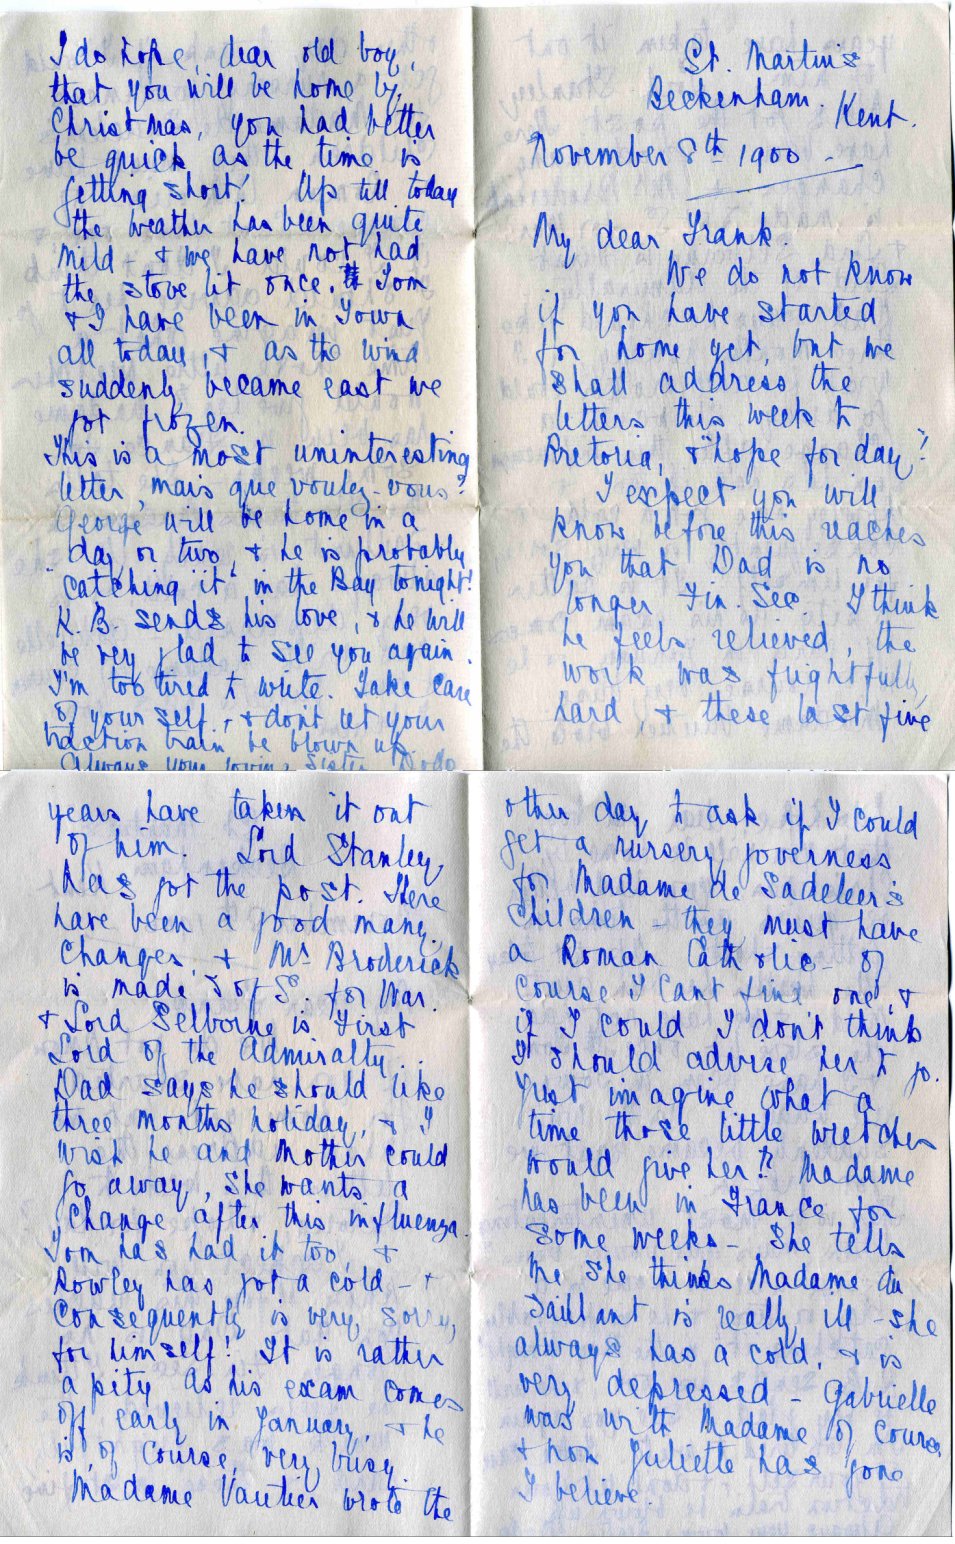 St. Martin's
Beckenham.
Kent.
November 8th 1900 -
My dear Frank.
We do not know
if you have started
for home yet, but we
shall address the
letters this week to
Pretoria, & "hope for day"?
I expect you will
know before this reaches
you that Dad is no
longer Fin. Sec. I think
he feels relieved, the
work was frightfully
hard & these last five
years have taken it out
of him. Lord Stanley
has got the post. There
have been a good many
changes, & Mr Broderick
is made S of S. for War.
& Lord Selborne is First
Lord of the Admiralty.
Dad says he should like
three months holiday, & I
wish he and Mother could
go away, she wants a
change after this influenza.
Tom has had it too, &
Rowley has got a cold - &
consequently is very sorry
for himself! It is rather
a pity as his exam comes
off early in January, & he
is, of course, very busy.
Madame Vautier wrote the
other day to ask if I could
get a nursery governess
for Madame de Sadeleer's
children - they must have
a Roman Catholic - of
course I cant find one, &
if I could I don't think
I should advise her to go.
Just imagine what a
time those little wretches
would give her!! Madame
has been in France for
some weeks - She tells
me she thinks Madame du
Saillant is really ill - she
always has a cold, & is
very depressed - Gabrielle
was with Madame of course,
& now Juliette has gone
I believe.
I do hope, dear old boy,
that you will be home by
Christmas, you had better
be quick as the time is
getting short! Up till today
the weather has been quite
mild - & we have not had
the stove lit once. Tom
& I have been in Town
all today, & as the wind
suddenly became east we
got frozen.
This is a most uninteresting
letter, mais que voulez-vous?
George will be home in a
day or two, & he is probably
"catching it" in the Bay tonight!
K. B. sends his love, & he will
be very glad to see you again.
I'm too tired to write. Take care
of your self, & don't let your
traction train be blown up.
Always your loving Sister Dodo